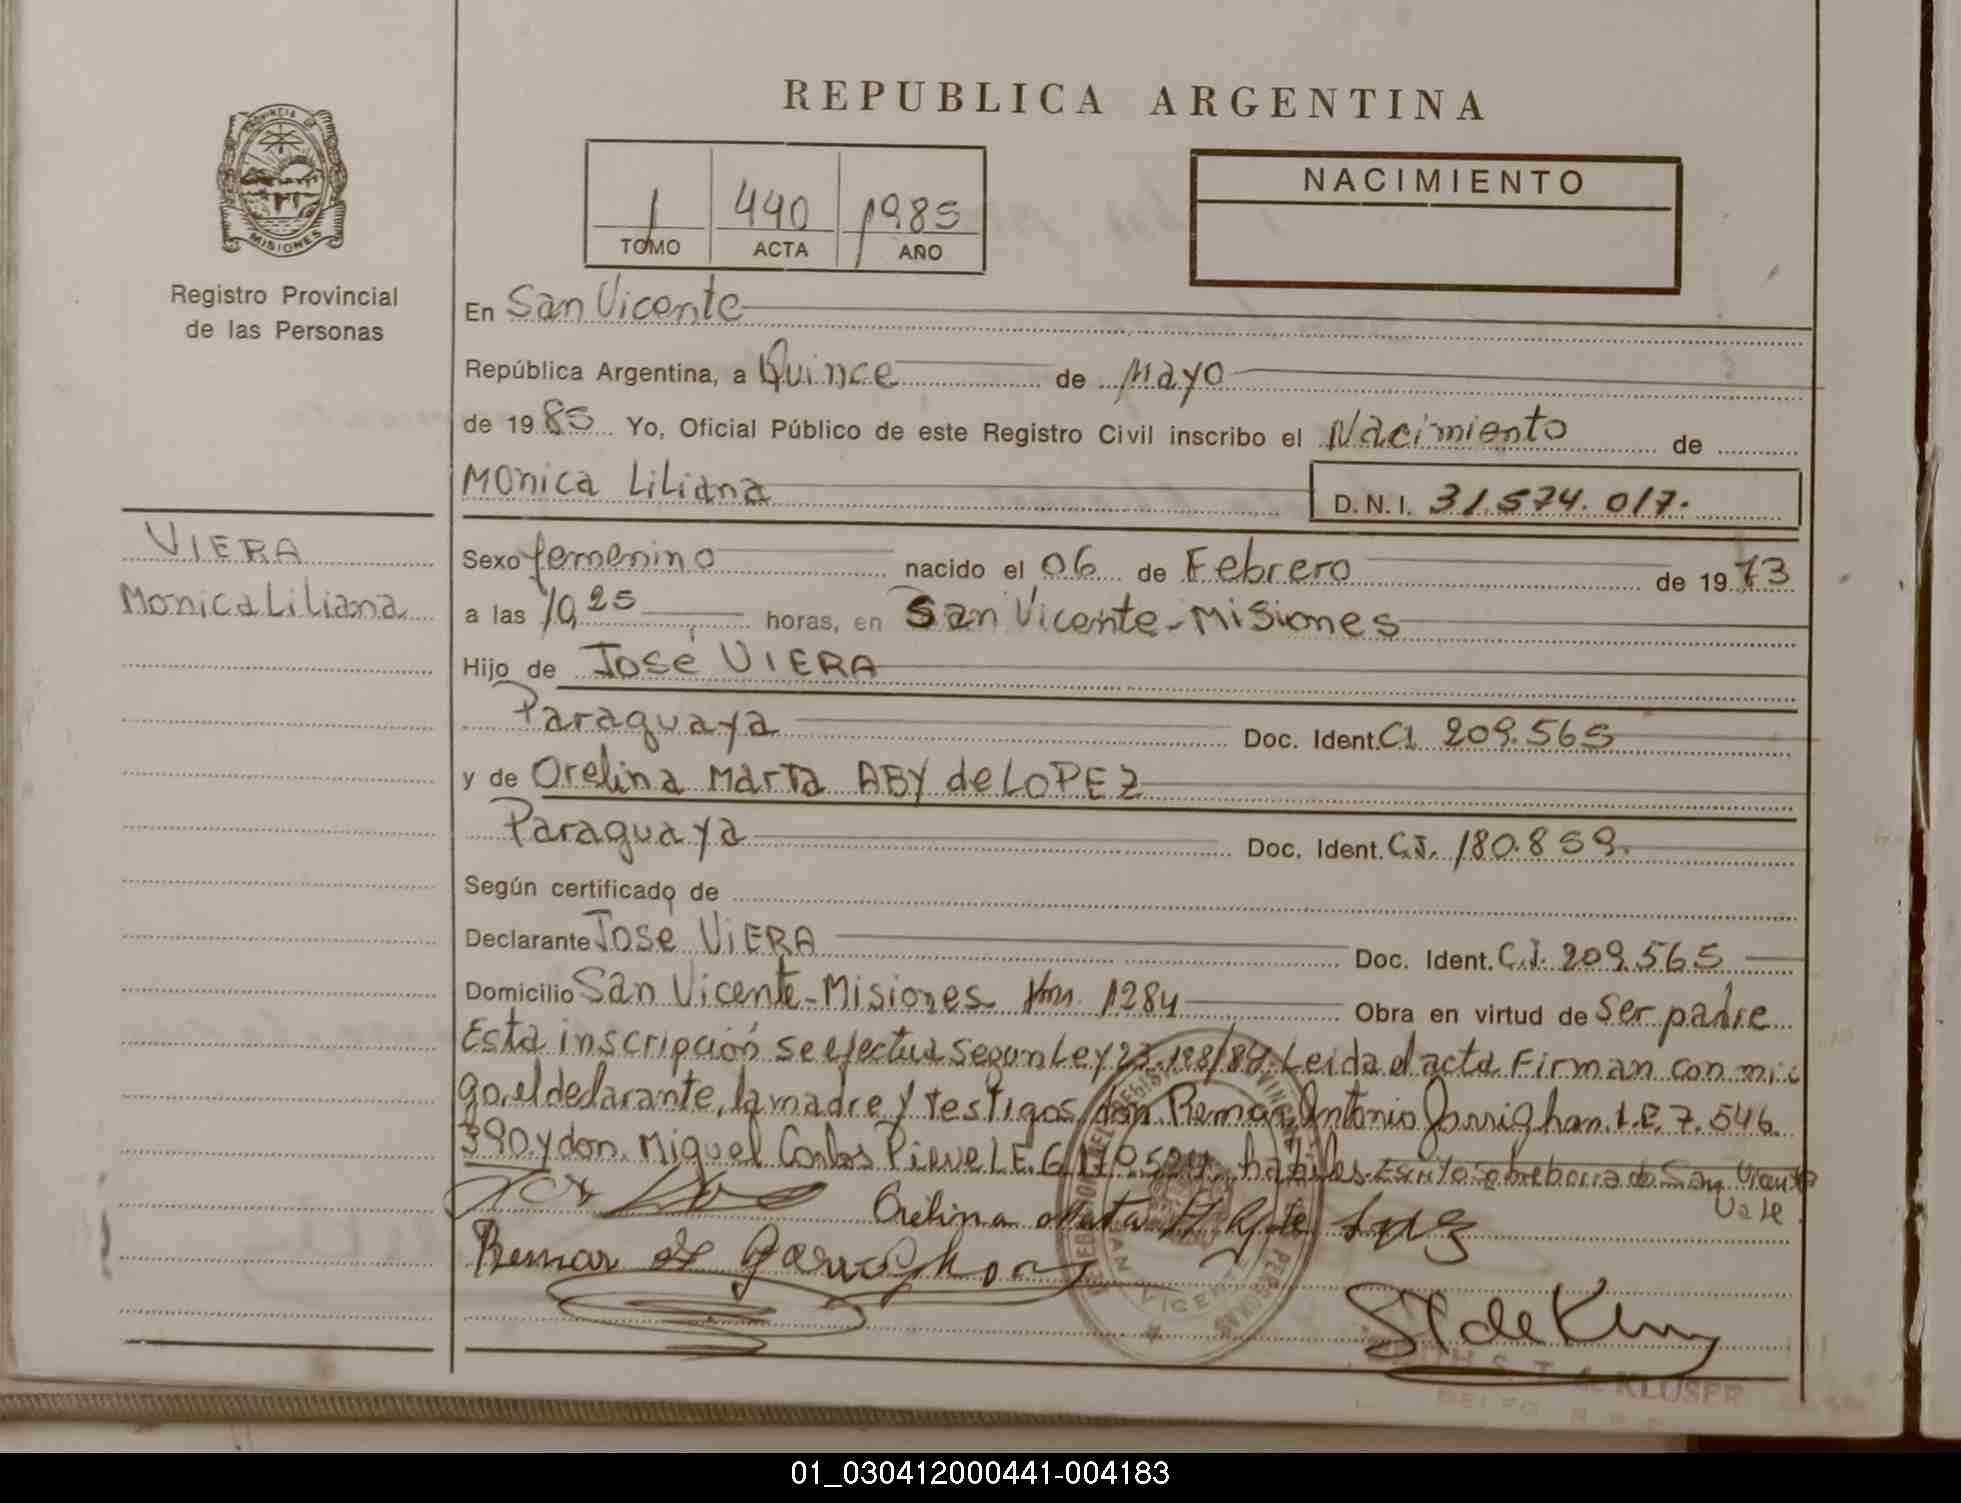 REPUBLICA ARGENTINA
PROVINCIA DE
MISIONES
Registro Provincial
de las Personas
1 440 1985
TOMO ACTA AÑO
NACIMIENTO
En San Vicente
República Argentina, a Quince de Mayo
de 1985 Yo, Oficial Público de este Registro Civil inscribo el Nacimiento de
Monica Liliana D.N.I. 31.574.017.
VIERA
Monica Liliana
Sexo femenino nacido el 06 de Febrero de 1973
a las 10,25 horas, en San Vicente-Misiones
Hijo de José VIERA
Paraguaya Doc. Ident. CI 209.565
y de Orelina Marta ABY de LOPEZ
Paraguaya Doc. Ident. C.I. 180.859.
Según certificado de
Declarante Jose ViERA Doc. Ident. C.I. 209.565
Domicilio San Vicente-Misiones Km. 1284 Obra en virtud de ser padre
Esta inscripción se efectua segun Ley 23.128/84. Leida el acta Firman con mi
go, el declarante, la madre y testigos, don Remar Antonio Garrighan L.E. 7.546.
390 y don Miguel Carlos Pieve L.E. habiles. Escrito sobre borrado San Vicente
Vale.
Orelina de
Remar
S T de Kluser
KLUSER
01_030412000441-004183